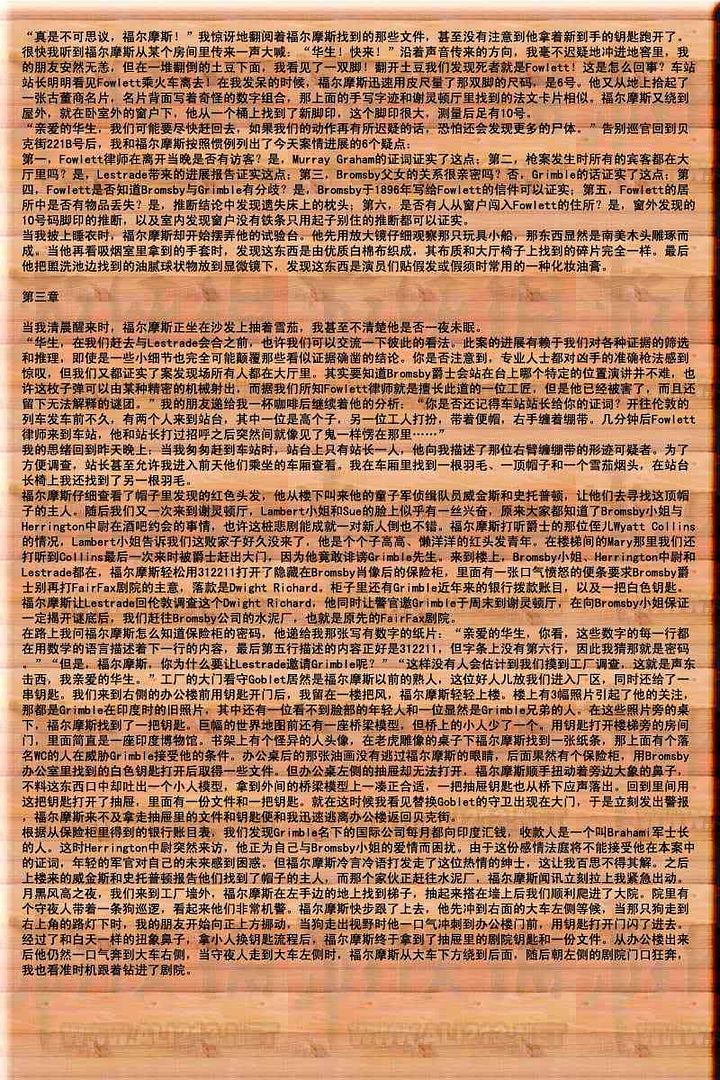 “真是不可思议，福尔摩斯！”我惊讶地翻阅着福尔摩斯找到的那些文件，甚至没有注意到他拿着新到手的钥匙跑开了。
很快我听到福尔摩斯从某个房间里传来一声大喊：“华生！快来！”沿着声音传来的方向，我毫不迟疑地冲进地窖里，我
的朋友安然无恙，但在一堆翻倒的土豆下面，我看见了一双脚！翻开土豆我们发现死者就是Fowlett！这是怎么回事？车站
站长明明看见Fowlett乘火车离去！在我发呆的时候，福尔摩斯迅速用皮尺量了那双脚的尺码，是6号。他又从地上拾起了
一张古董商名片，名片背面写着奇怪的数字组合，那上面的手写字迹和谢灵顿厅里找到的法文卡片相似。福尔摩斯又绕到
屋外，就在卧室外的窗户下，他从一个桶上找到了新脚印，这个脚印很大，测量后足有10号。
“亲爱的华生，我们可能要尽快赶回去，如果我们的动作再有所迟疑的话，恐怕还会发现更多的尸体。”告别巡官回到贝
克街221B号后，我和福尔摩斯按照惯例列出了今天案情进展的6个疑点：
第一，Fowlett律师在离开当晚是否有访客？是，Murray Graham的证词证实了这点；第二，枪案发生时所有的宾客都在大
厅里吗？是，Lestrade带来的进展报告证实这点；第三，Bromsby父女的关系很亲密吗？否，Grimble的话证实了这点；第
四，Fowlett是否知道Bromsby与Grimble有分歧？是，Bromsby于1896年写给Fowlett的信件可以证实；第五，Fowlett的居
所中是否有物品丢失？是，推断结论中发现遗失床上的枕头；第六，是否有人从窗户闯入Fowlett的住所？是，窗外发现的
10号码脚印的推断，以及室内发现窗户没有铁条只用起子别住的推断都可以证实。
当我披上睡衣时，福尔摩斯却开始摆弄他的试验台。他先用放大镜仔细观察那只玩具小船，那东西显然是南美木头雕琢而
成。当他再看吸烟室里拿到的手套时，发现这东西是由优质白棉布织成，其布质和大厅椅子上找到的碎片完全一样。最后
他把盥洗池边找到的油腻球状物放到显微镜下，发现这东西是演员们贴假发或假须时常用的一种化妆油膏。
第三章
当我清晨醒来时，福尔摩斯正坐在沙发上抽着雪茄，我甚至不清楚他是否一夜未眠。
“华生，在我们赶去与Lestrade会合之前，也许我们可以交流一下彼此的看法。此案的进展有赖于我们对各种证据的筛选
和推理，即使是一些小细节也完全可能颠覆那些看似证据确凿的结论。你是否注意到，专业人士都对凶手的准确枪法感到
惊叹，但我们又都证实了案发现场所有人都在大厅里。其实要知道Bromsby爵士会站在台上哪个特定的位置演讲并不难，也
许这枚子弹可以由某种精密的机械射出，而据我们所知Fowlett律师就是擅长此道的一位工匠，但是他已经被害了，而且还
留下无法解释的谜团。”我的朋友递给我一杯咖啡后继续着他的分析：“你是否还记得车站站长给你的证词？开往伦敦的
列车发车前不久，有两个人来到站台，其中一位是高个子，另一位工人打扮，带着便帽，右手缠着绷带。几分钟后Fowlett
律师来到车站，他和站长打过招呼之后突然间就像见了鬼一样愣在那里……”
我的思绪回到昨天晚上；当我匆匆赶到车站时，站台上只有站长一人，他向我描述了那位右臂缠绷带的形迹可疑者。为了
方便调查，站长甚至允许我进入前天他们乘坐的车厢查看。我在车厢里找到一根羽毛、一顶帽子和一个雪茄烟头，在站台
长椅上我还找到了另一根羽毛。
福尔摩斯仔细查看了帽子里发现的红色头发，他从楼下叫来他的童子军侦缉队员威金斯和史托普顿，让他们去寻找这顶帽
子的主人。随后我们又一次来到谢灵顿厅，Lambert小姐和Sue的脸上似乎有一丝兴奋，原来大家都知道了Bromsby小姐与
Herrington中尉在酒吧约会的事情，也许这桩悲剧能成就一对新人倒也不错。福尔摩斯打听爵士的那位侄儿Wyatt Collins
的情况，Lambert小姐告诉我们这败家子好久没来了，他是个个子高高、懒洋洋的红头发青年。在楼梯间的Mary那里我们还
打听到Collins最后一次来时被爵士赶出大门，因为他竟敢诽谤Grimble先生。来到楼上，Bromsby小姐、Herrington中尉和
Lestrade都在，福尔摩斯轻松用312211打开了隐藏在Bromsby肖像后的保险柜，里面有一张口气愤怒的便条要求Bromsby爵
士别再打FairFax剧院的主意，落款是Dwight Richard。柜子里还有Grimble近年来的银行拨款账目，以及一把白色钥匙。
福尔摩斯让Lestrade回伦敦调查这个Dwight Richard，他同时让警官邀Grimble于周末到谢灵顿厅，在向Bromsby小姐保证
一定揭开谜底后，我们赶往Bromsby公司的水泥厂，也就是原先的FairFax剧院。
在路上我问福尔摩斯怎么知道保险柜的密码，他递给我那张写有数字的纸片：“亲爱的华生，你看，这些数字的每一行都
在用数学的语言描述着下一行的内容，最后第五行描述的内容正好是312211，但字条上没有第六行，因此我猜那就是密码
。”“但是，福尔摩斯，你为什么要让Lestrade邀请Grimble呢？”“这样没有人会估计到我们摸到工厂调查，这就是声东
击西，我亲爱的华生。”工厂的大门看守Goblet居然是福尔摩斯以前的熟人，这位好人儿放我们进入厂区，同时还给了一
串钥匙。我们来到右侧的办公楼前用钥匙开门后，我留在一楼把风，福尔摩斯轻轻上楼。楼上有3幅照片引起了他的关注，
那都是Grimble在印度时的旧照片，其中还有一位看不到脸部的年轻人和一位显然是Grimble兄弟的人。在这些照片旁的桌
下，福尔摩斯找到了一把钥匙。巨幅的世界地图前还有一座桥梁模型，但桥上的小人少了一个。用钥匙打开楼梯旁的房间
门，里面简直是一座印度博物馆。书架上有个怪异的人头像，在老虎雕像的桌子下福尔摩斯找到一张纸条，那上面有个落
名WC的人在威胁Grimble接受他的条件。办公桌后的那张油画没有逃过福尔摩斯的眼睛，后面果然有个保险柜，用Bromsby
办公室里找到的白色钥匙打开后取得一些文件。但办公桌左侧的抽屉却无法打开，福尔摩斯顺手扭动着旁边大象的鼻子，
不料这东西口中却吐出一个小人模型，拿到外间的桥梁模型上一凑正合适，一把抽屉钥匙也从桥下应声落出。回到里间用
这把钥匙打开了抽屉，里面有一份文件和一把钥匙。就在这时候我看见替换Goblet的守卫出现在大门，于是立刻发出警报
，福尔摩斯来不及拿走抽屉里的文件和钥匙便和我迅速逃离办公楼返回贝克街。
根据从保险柜里得到的银行账目表，我们发现Grimble名下的国际公司每月都向印度汇钱，收款人是一个叫Brahami军士长
的人。这时Herrington中尉突然来访，他正为自己与Bromsby小姐的爱情而困扰。由于这份感情法庭将不能接受他在本案中
的证词，年轻的军官对自己的未来感到困惑。但福尔摩斯冷言冷语打发走了这位热情的绅士，这让我百思不得其解。之后
上楼来的威金斯和史托普顿报告他们找到了帽子的主人，而那个家伙正赶往水泥厂，福尔摩斯闻讯立刻拉上我紧急出动。
月黑风高之夜，我们来到工厂墙外，福尔摩斯在左手边的地上找到梯子，抽起来搭在墙上后我们顺利爬进了大院。院里有
个守夜人带着一条狗巡逻，看起来他们非常机警。福尔摩斯快步跟了上去，他先冲到右面的大车左侧等候，当那只狗走到
右上角的路灯下时，我的朋友开始向正上方挪动，当狗走出视野时他一口气冲刺到办公楼门前，用钥匙打开门闪了进去。
经过了和白天一样的扭象鼻子，拿小人换钥匙流程后，福尔摩斯终于拿到了抽屉里的剧院钥匙和一份文件。从办公楼出来
后他仍然一口气奔到大车右侧，当守夜人走到大车左侧时，福尔摩斯从大车下方绕到后面，随后朝左侧的剧院门口狂奔，
我也看准时机跟着钻进了剧院。